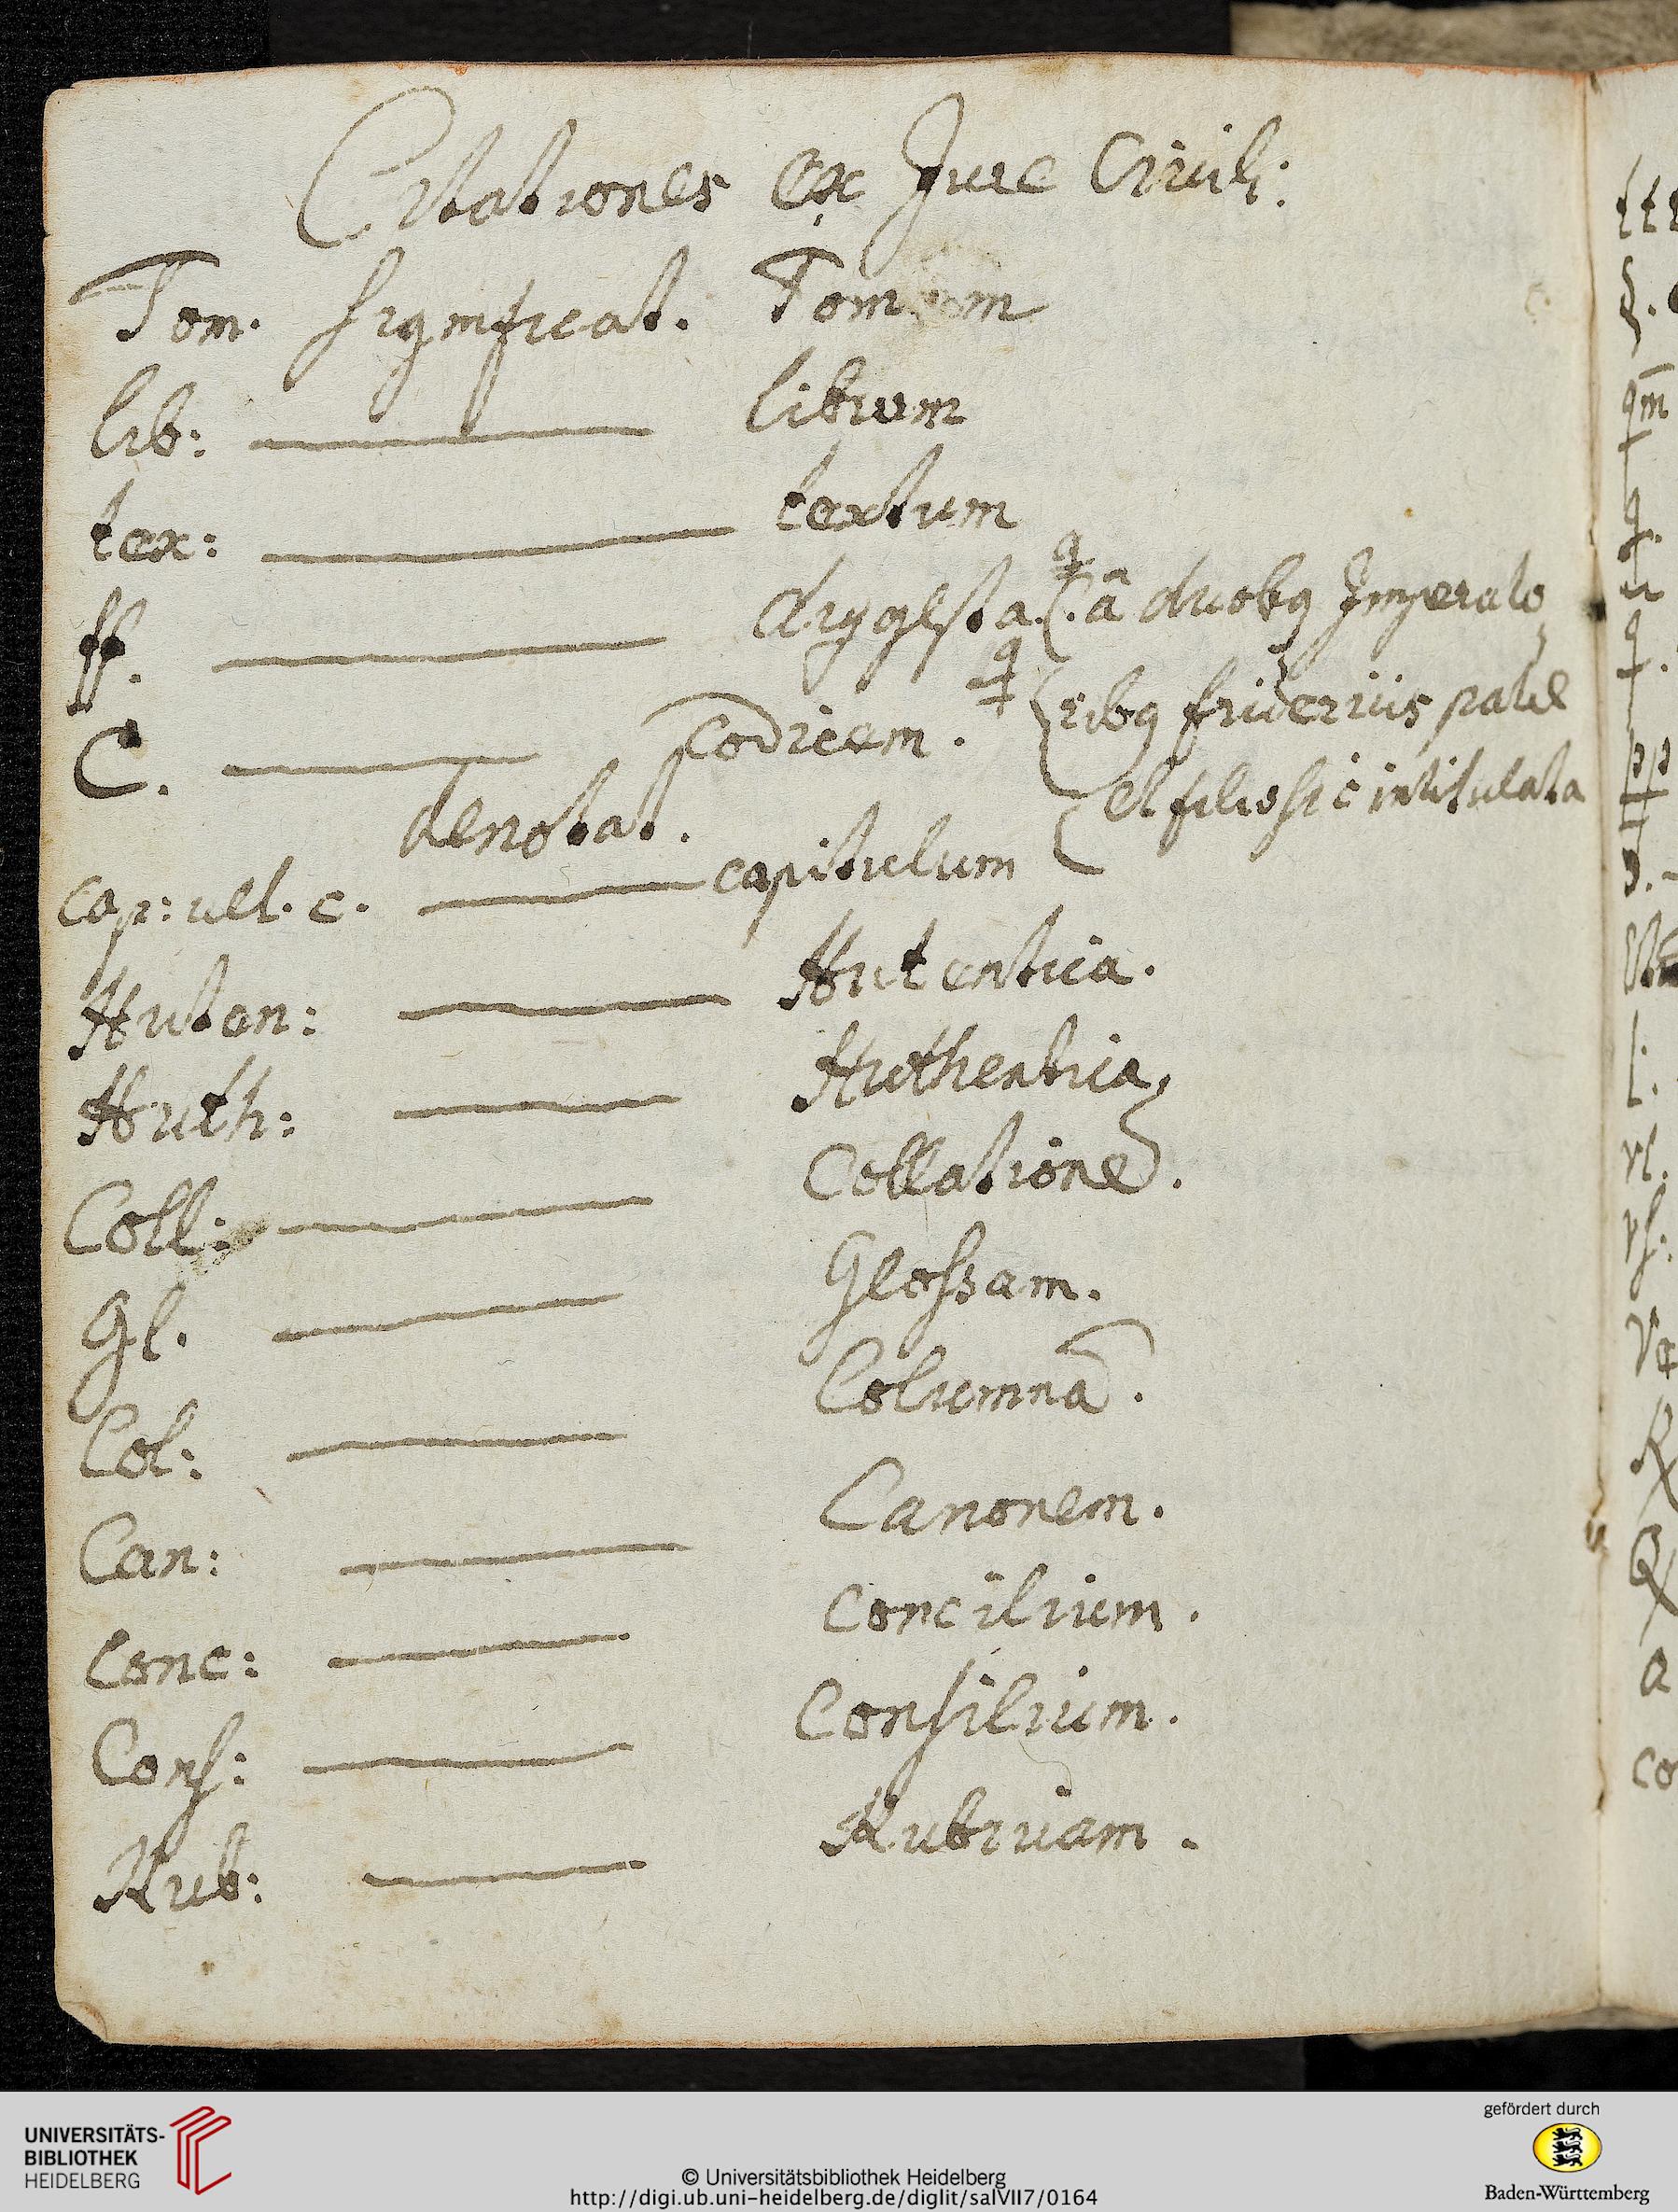 Citationes ex Jure Civili:
Tom. significat. Tomum
lib: librum
tex: textum
ff. diggesta. (. â duobq Imperato
C. Codicem. ribq friderijs patre
denotat. et filio sic intitulata
cap: vel. c. capitulum
Auten: Autentica.
Auth: Authentica,
Coll: Collationē.
Gl. Glossam.
Col: Columnā.
Can: Canonem.
Conc: Concilium.
Cons: Consilium.
Rub: Rubricam.
UNIVERSITÄTS-
BIBLIOTHEK
HEIDELBERG
© Universitätsbibliothek Heidelberg
http://digi.ub.uni-heidelberg.de/diglit/salVII7/0164
gefördert durch
Baden-Württemberg